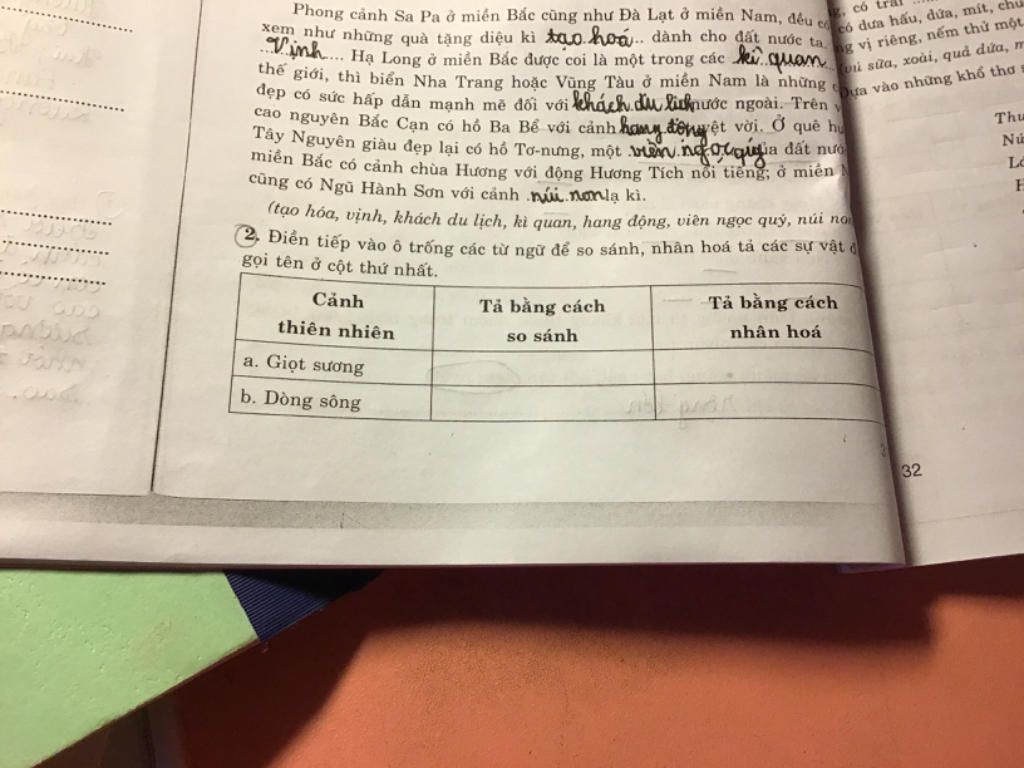 Phong cảnh Sa Pa ở miền Bắc cũng như Đà Lạt ở miền Nam, đều có
xem như những quà tặng diệu kì tạo hoá... dành cho đất nước ta.
...Vịnh.... Hạ Long ở miền Bắc được coi là một trong các kì quan
thế giới, thì biển Nha Trang hoặc Vũng Tàu ở miền Nam là những
đẹp có sức hấp dẫn mạnh mẽ đối với khách du lịch nước ngoài. Trên
cao nguyên Bắc Cạn có hồ Ba Bể với cảnh hang động yệt vời. Ở quê
Tây Nguyên giàu đẹp lại có hồ Tơ-nưng, một viên ngọc quý ủa đất nướ
miền Bắc có cảnh chùa Hương với động Hương Tích nổi tiếng; ở miền
cũng có Ngũ Hành Sơn với cảnh núi non lạ kì.
(tạo hóa, vịnh, khách du lịch, kì quan, hang động, viên ngọc quý, núi no
2. Điền tiếp vào ô trống các từ ngữ để so sánh, nhân hoá tả các sự vật
gọi tên ở cột thứ nhất.
Cảnh thiên nhiên
Tả bằng cách so sánh
Tả bằng cách nhân hoá
a. Giọt sương
b. Dòng sông
có trái ......
có dưa hấu, dứa, mít,
vị riêng, nếm thử một
vú sữa, xoài, quả dứa,
Dựa vào những khổ thơ
32